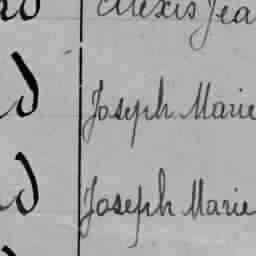 Alexis Jea
d Joseph Marie
d Joseph Marie